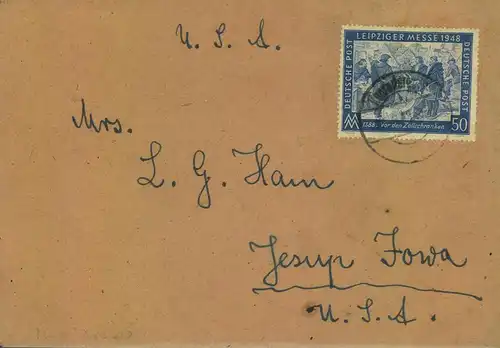 U. S. A.
LEIPZIGER MESSE 1948
DEUTSCHE POST
DEUTSCHE POST
1388. Vor den Zollschranken
50
Mrs.
L. G. Ham
Jesup Iowa
U. S. A.